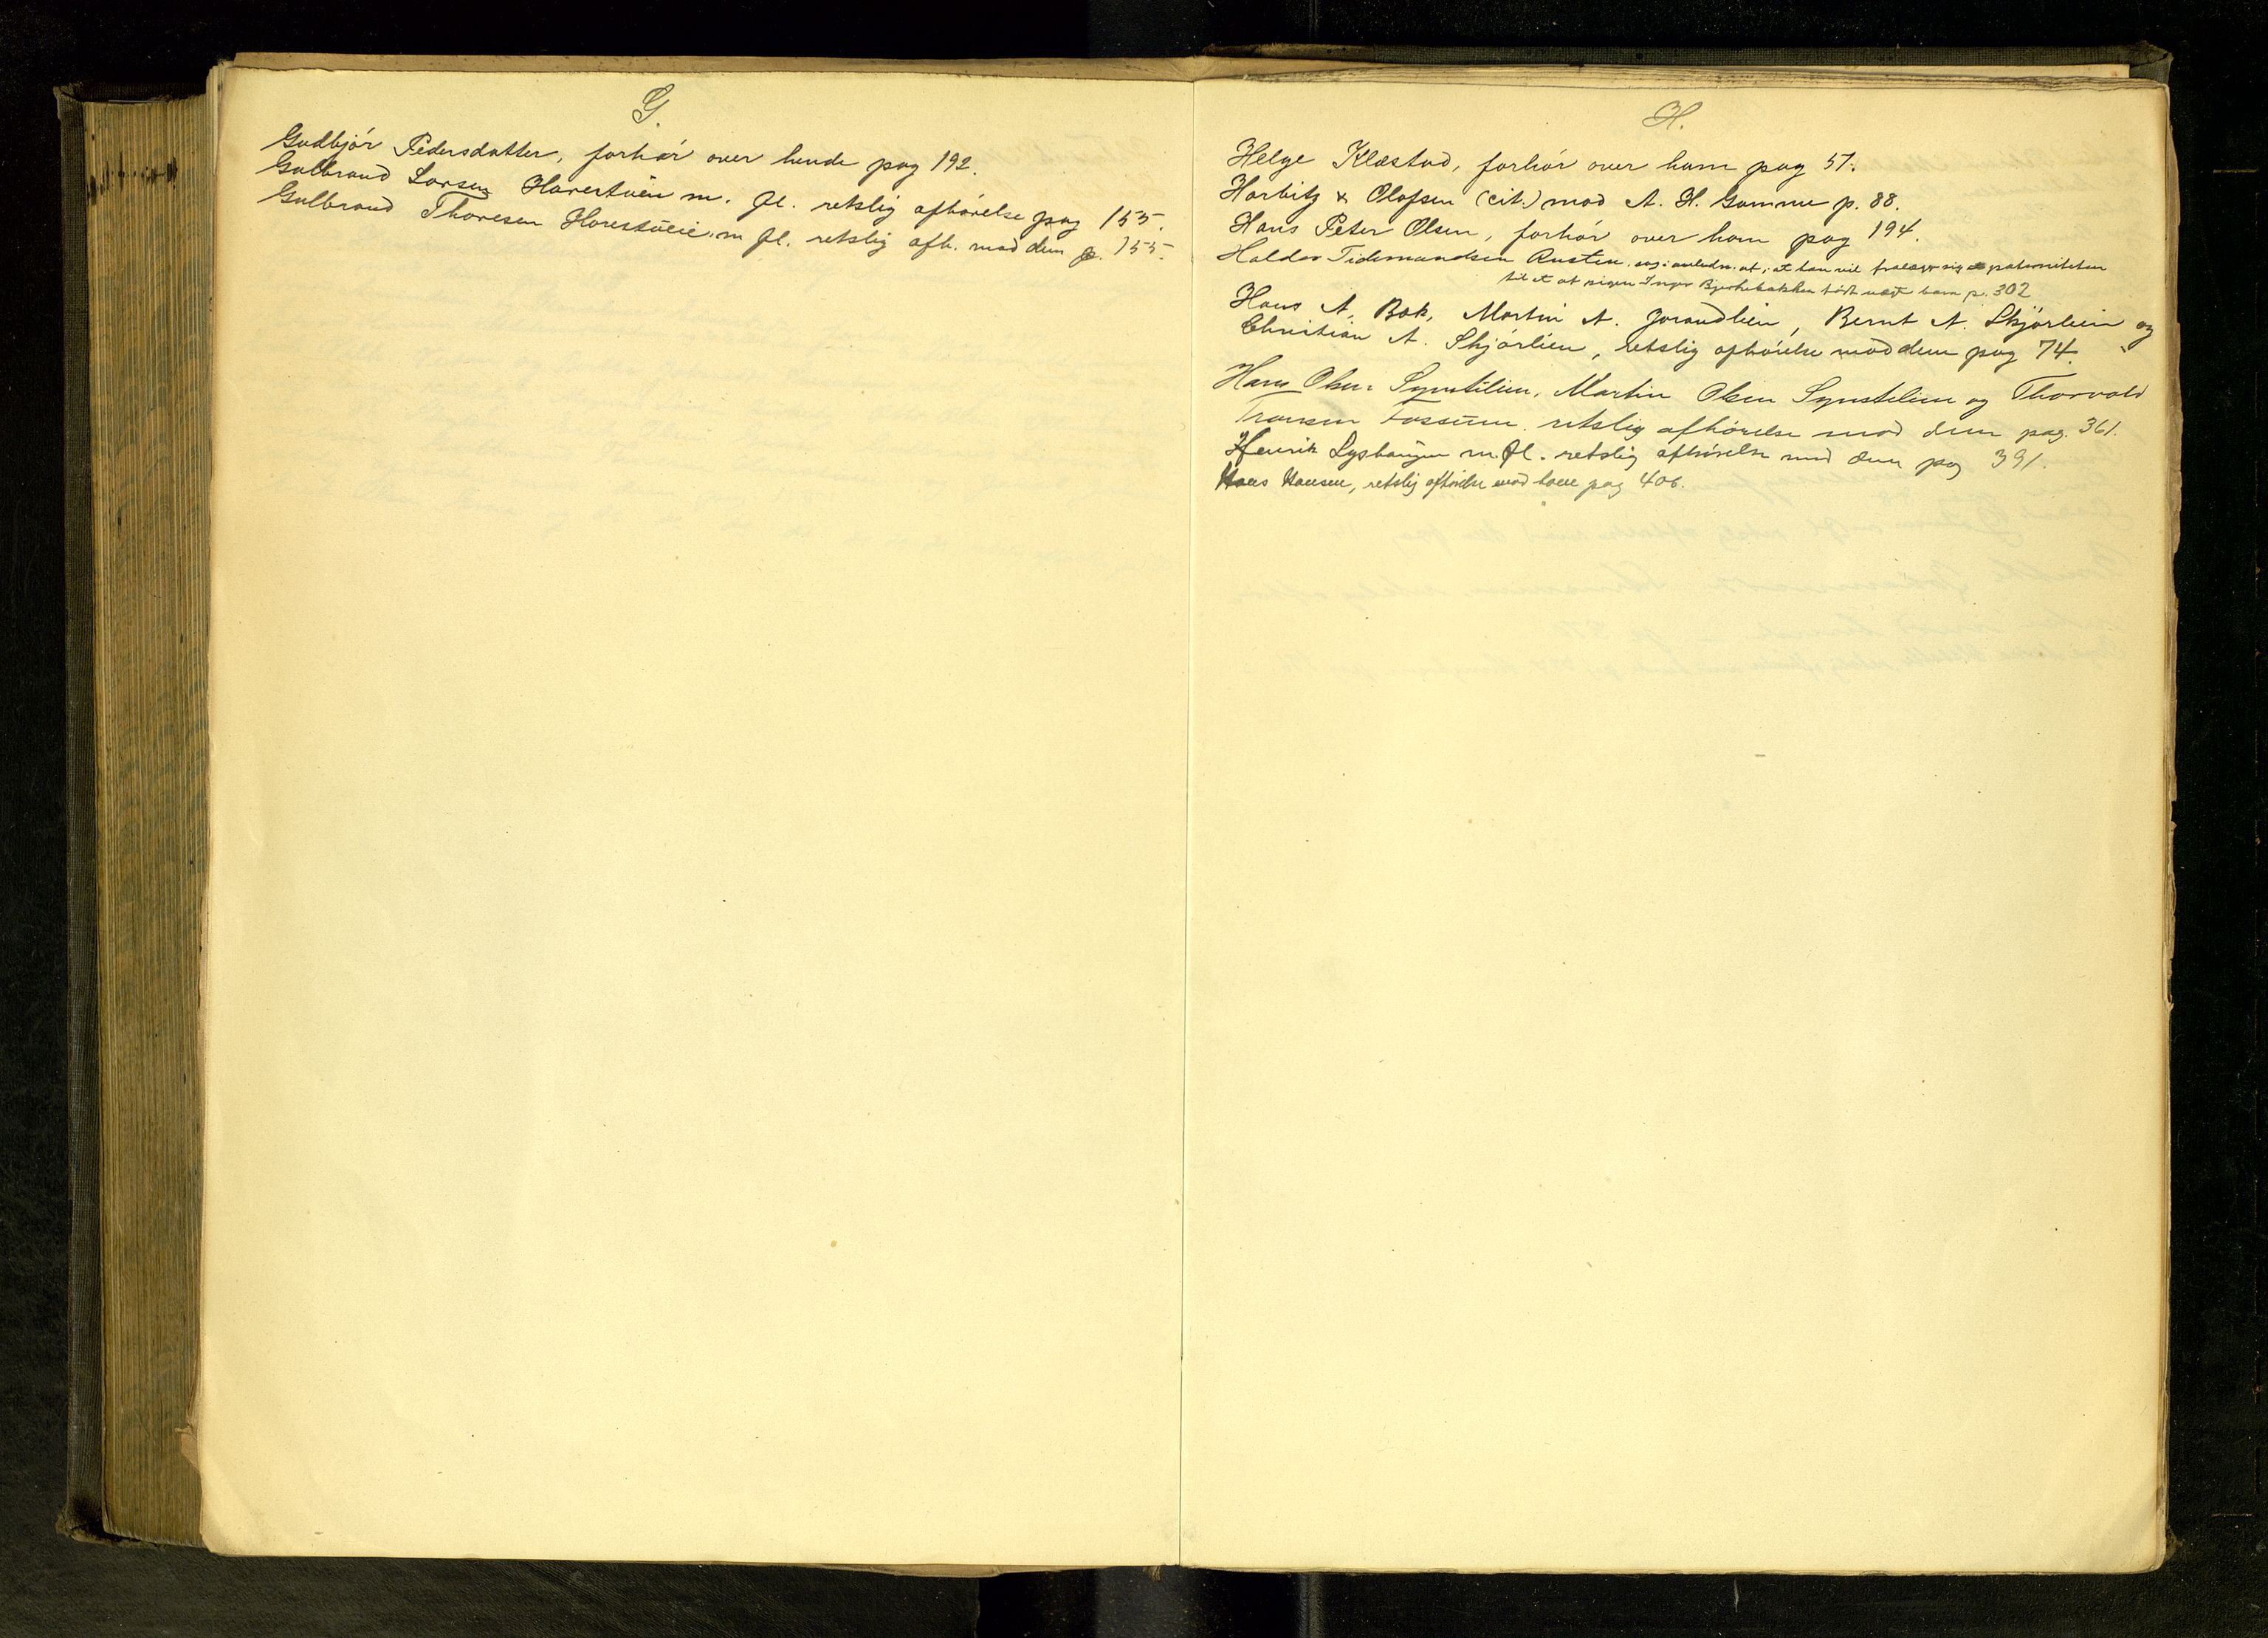 G.
Gudbjör Pedersdatter, forhör over hende pag 192.
Gulbrand Larsen Harestuen m. fl. retslig afhörelse pag 155.
Gulbrand Thoresen Harestueie m fl. retslig afh. mod dem p. 155.
H.
Helge Klæstad, forhör over ham pag 57.
Harbitz & Olafsen (cit.) mod A. H. Gamme p. 88.
Hans Peter Olsen, forhör over ham pag 194.
Haldor Tidemandsen Rusten, sag i anledn. af, at han vil fralægge sig paterniteten
til et af pigen Inger Bjerkebakken födt uægt barn p. 302
Hans A. Bæk, Martin A. Jorandlien, Bernt A. Skjörlien og
Christian A. Skjörlien, retslig afhörelse mod dem pag 74.
Hans Olsen Synstelien, Martin Olsen Synstelien og Thorvald
Fossum retslig afhörelse mod dem pag. 361.
Henrik Lyshaugen m. fl. retslig afhörelse mod dem pag 391.
Hans Hansen, retslig afhörelse mod ham pag 406.